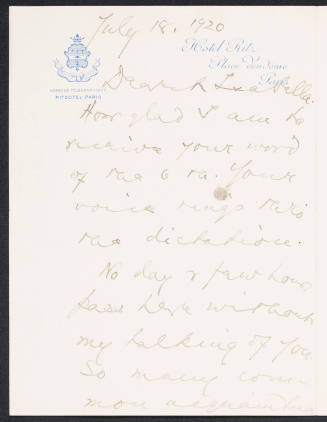 July 18, 1920
Hôtel Ritz
Place Vendôme
Paris
ADRESSE TÉLÉGRAPHIQUE
RITZOTEL PARIS
Dearest Isabella:
How glad I am to
receive your word
of the 6th. Your
voice rings thro
the dictation.
No day & few hours
pass here without
my talking of you.
So many com-
mon acquaintan